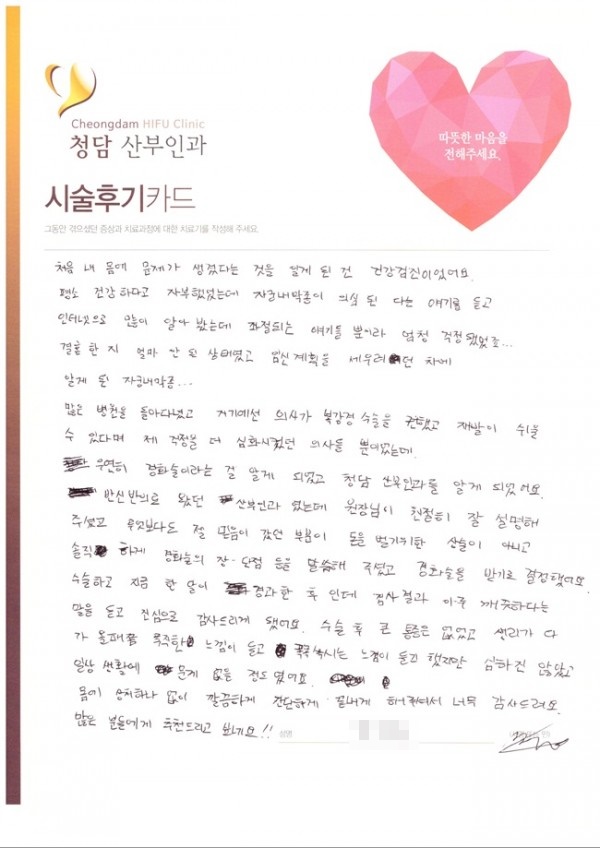 Cheongdam HIFU Clinic
청담 산부인과
따뜻한 마음을
전해주세요.
시술후기카드
그동안 겪으셨던 증상과 치료과정에 대한 치료기를 작성해 주세요.
처음 내 몸에 문제가 생겼다는 것을 알게 된 건 건강검진이었어요.
평소 건강하다고 자부했었는데 자궁내막종이 의심 된 다는 얘기를 듣고
인터넷으로 많이 알아 봤는데 걱정되는 얘기들 뿐이라 엄청 걱정했었죠...
결혼 한 지 얼마 안 된 상태였고 임신계획을 세우려던 차에
알게 된 자궁내막종...
많은 병원을 돌아다녔고 거기에선 의사가 복강경 수술을 권했고 재발이 쉬울
수 있다며 제 걱정을 더 심화시켰던 의사들 뿐이었는데.
우연히 경화술이라는 걸 알게 되었고 청담 산부인과를 알게 되었어요.
반신반의로 왔던 산부인과 였는데 원장님이 친절히 잘 설명해
주셨고 무엇보다도 젤 믿음이 갔던 부분이 돈을 벌기위한 상술이 아니고
솔직하게 경화술의 장·단점 등을 말씀해 주셨고 경화술을 받기로 결정했어요.
수술하고 지금 한 달이 경과한 후 인데 검사결과 아주 깨끗하다는
말을 듣고 진심으로 감사드리게 됐어요. 수술 후 큰 통증은 없었고 생리가 다
가 올때쯤 묵직한 느낌이 들고 쿡쿡 쑤시는 느낌이 들긴 했지만 심하진 않았고
일상 생활에 문제 없을 정도였어요.
몸에 상처하나 없이 깔끔하게 간단하게 끝내게 해주셔서 너무 감사드려요.
많은 분들에게 추천드리고 싶네요!!
성명